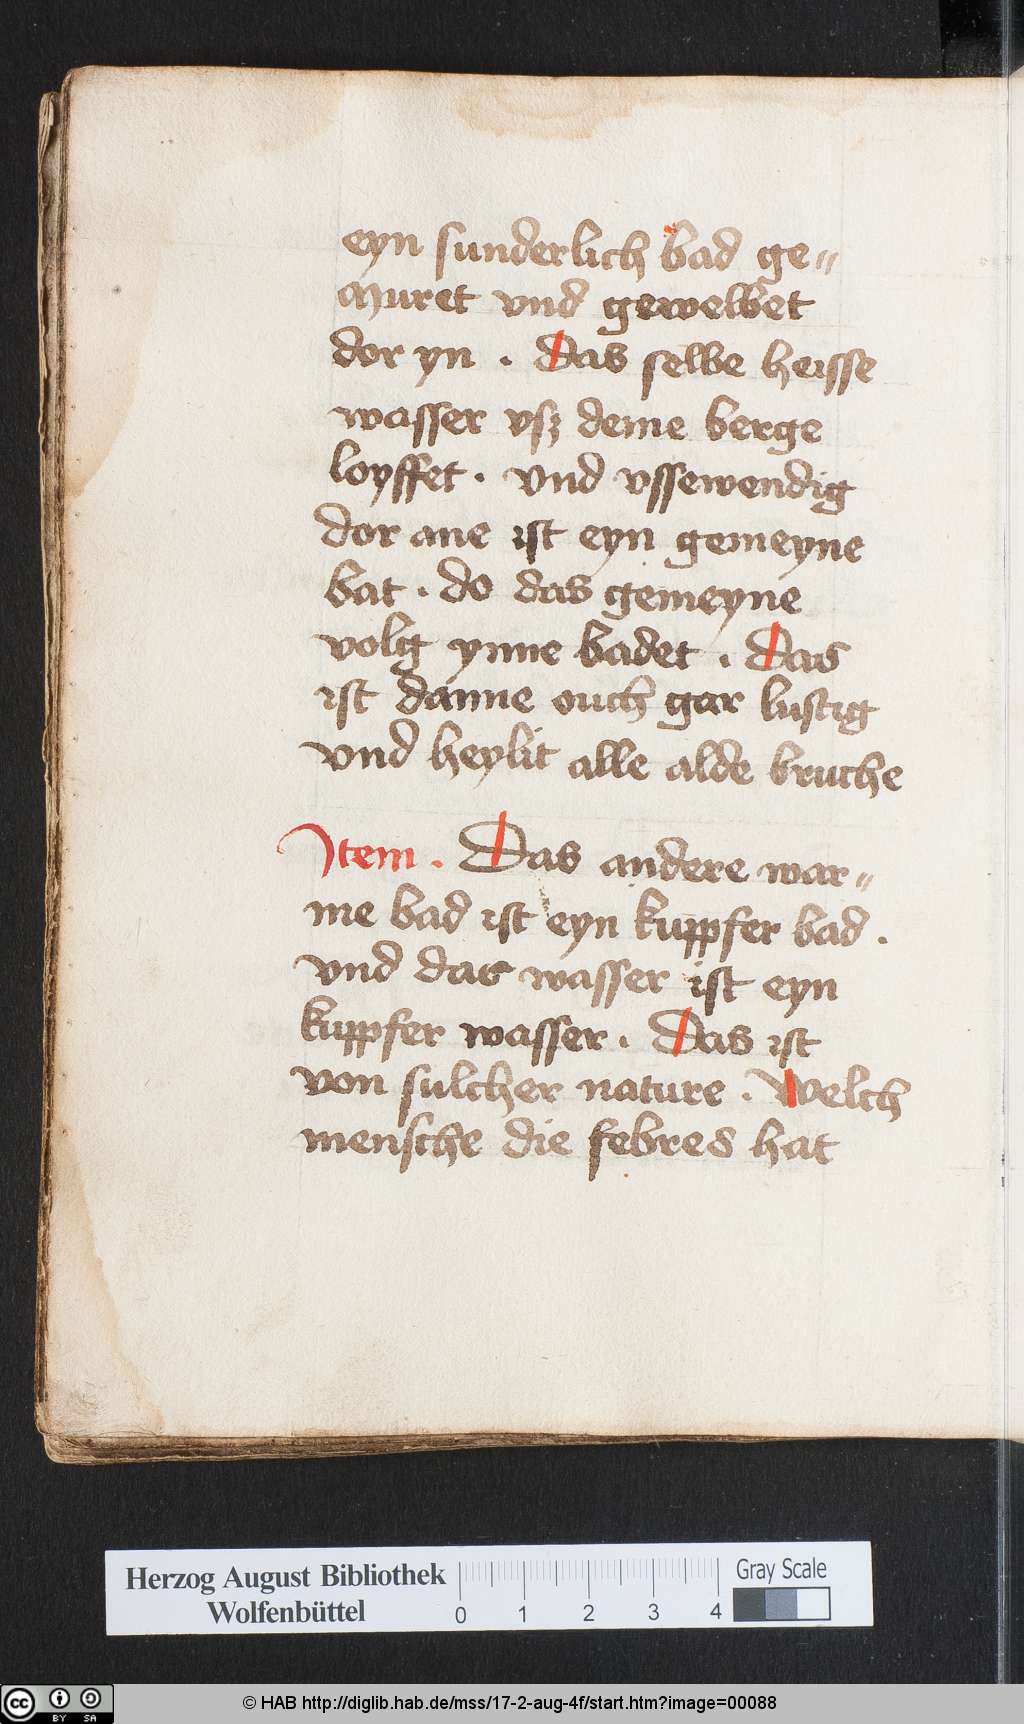 eyn sunderlich bad ge⸗
muret vnd gewelbet
dor yn . Das selbe heisse
wasser vsz deme berge
loyffet . vnd vssewendig
dor ane ist eyn gemeyne
bat . do das gemeyne
volg ynne badet . Das
ist danne ouch gar lustig
vnd heylit alle alde bruche
Item . Das andere war⸗
me bad ist eyn kuppfer bad .
vnd das wasser ist eyn
kuppfer wasser . Das ist
von sulcher nature . Welch
mensche die febres hat
Herzog August Bibliothek
Wolfenbüttel
0 1 2 3 4
Gray Scale
cc BY SA
© HAB http://diglib.hab.de/mss/17-2-aug-4f/start.htm?image=00088